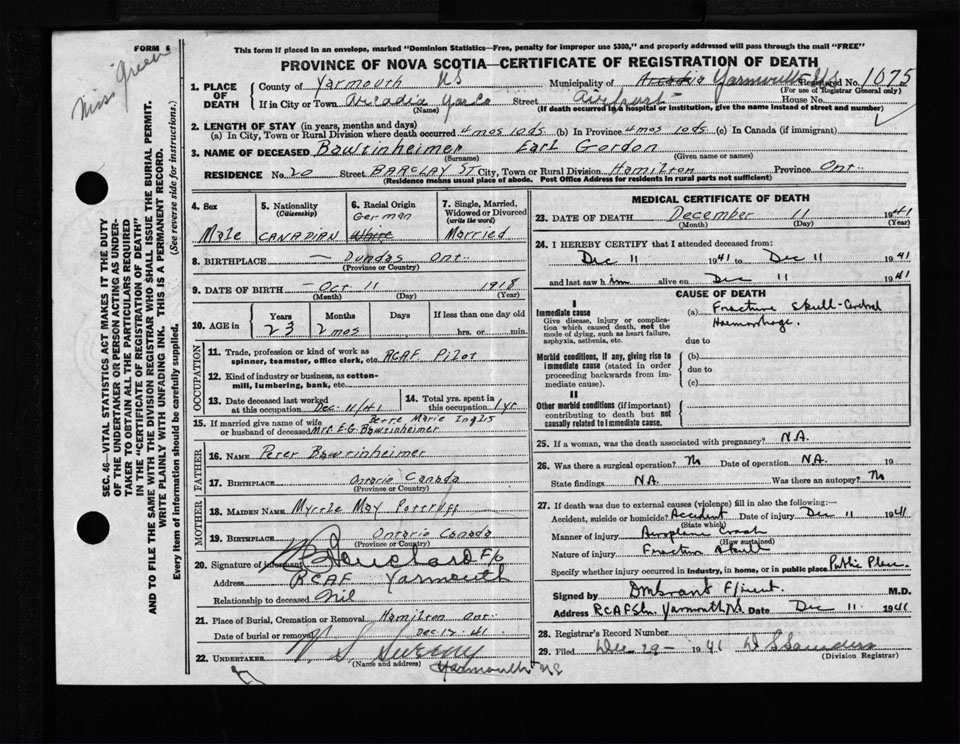 FORM 6
Miss Green
This form if placed in an envelope, marked "Dominion Statistics—Free, penalty for improper use $300," and properly addressed will pass through the mail "FREE"
PROVINCE OF NOVA SCOTIA—CERTIFICATE OF REGISTRATION OF DEATH
SEC. 46—VITAL STATISTICS ACT MAKES IT THE DUTY
OF THE UNDERTAKER OR PERSON ACTING AS UNDER-
TAKER TO OBTAIN ALL THE PARTICULARS REQUIRED
IN THE "CERTIFICATE OF REGISTRATION OF DEATH"
AND TO FILE THE SAME WITH THE DIVISION REGISTRAR WHO SHALL ISSUE THE BURIAL PERMIT.
WRITE PLAINLY WITH UNFADING INK. THIS IS A PERMANENT RECORD.
Every item of Information should be carefully supplied. (See reverse side for instructions.)
1. PLACE OF DEATH County of Yarmouth NS Municipality of Arcadia Yarmouth NS Registered No. 1075
(For use of Registrar General only)
If in City or Town Arcadia Yar Co Street Airport House No.
(Name) (If death occurred in a hospital or institution, give the name instead of street and number)
2. LENGTH OF STAY (in years, months and days)
(a) In City, Town or Rural Division where death occurred 4 mos 10 ds (b) In Province 4 mos 10 ds (c) In Canada (if immigrant)
3. NAME OF DECEASED Bawtinheimer Earl Gordon
(Surname) (Given name or names)
RESIDENCE No. 20 Street BARCLAY ST City, Town or Rural Division Hamilton Province Ont
(Residence means usual place of abode. Post Office Address for residents in rural parts not sufficient)
4. Sex Male
5. Nationality (Citizenship) CANADIAN
6. Racial Origin German White
7. Single, Married, Widowed or Divorced (write the word) Married
8. BIRTHPLACE — Dundas Ont.
(Province or Country)
9. DATE OF BIRTH — Oct 11 1918
(Month) (Day) (Year)
10. AGE in Years Months Days If less than one day old
23 2 mos hrs. or min.
OCCUPATION
11. Trade, profession or kind of work as spinner, teamster, office clerk, etc. RCAF Pilot
12. Kind of industry or business, as cotton-mill, lumbering, bank, etc.
13. Date deceased last worked at this occupation Dec. 11/41
14. Total yrs. spent in this occupation 1 yr
15. If married give name of wife or husband of deceased Marie Inglis
Mrs E.G. Bawtinheimer
FATHER
16. Name Peter Bawtinheimer
17. Birthplace Ontario Canada
(Province or Country)
MOTHER
18. Maiden Name Myrtle May
19. Birthplace Ontario Canada
(Province or Country)
20. Signature of informant F/O
Address RCAF Yarmouth
Relationship to deceased Nil
21. Place of Burial, Cremation or Removal Hamilton Ont.
Date of burial or removal Dec. 12. 41
22. UNDERTAKER V. S. Sweeny
(Name and address) Yarmouth NS
MEDICAL CERTIFICATE OF DEATH
23. DATE OF DEATH December 11 1941
(Month) (Day) (Year)
24. I HEREBY CERTIFY that I attended deceased from:
Dec 11 1941 to Dec 11 1941
and last saw him alive on Dec 11 1941
CAUSE OF DEATH
I
Immediate cause (a) Fracture Skull - Cerebral
Haemorrhage.
Give disease, injury or complication which caused death, not the mode of dying, such as heart failure, asphyxia, asthenia, etc.
due to
Morbid conditions, if any, giving rise to immediate cause (stated in order proceeding backwards from immediate cause).
(b)
due to
(c)
II
Other morbid conditions (if important) contributing to death but not causally related to immediate cause.
25. If a woman, was the death associated with pregnancy? N.A.
26. Was there a surgical operation? No Date of operation N.A. 19
State findings N.A. Was there an autopsy? No
27. If death was due to external causes (violence) fill in also the following:—
Accident, suicide or homicide? Accident Date of injury Dec 11 1941
(State which)
Manner of injury Airoplane Crash
(How sustained)
Nature of injury Fracture Skull
Specify whether injury occurred in industry, in home, or in public place Public Place
Signed by F/Lieut. M.D.
Address R.C.A.F. Stn. Yarmouth N.S. Date Dec 11 1941
28. Registrar's Record Number
29. Filed Dec 29 - 1941
(Division Registrar)